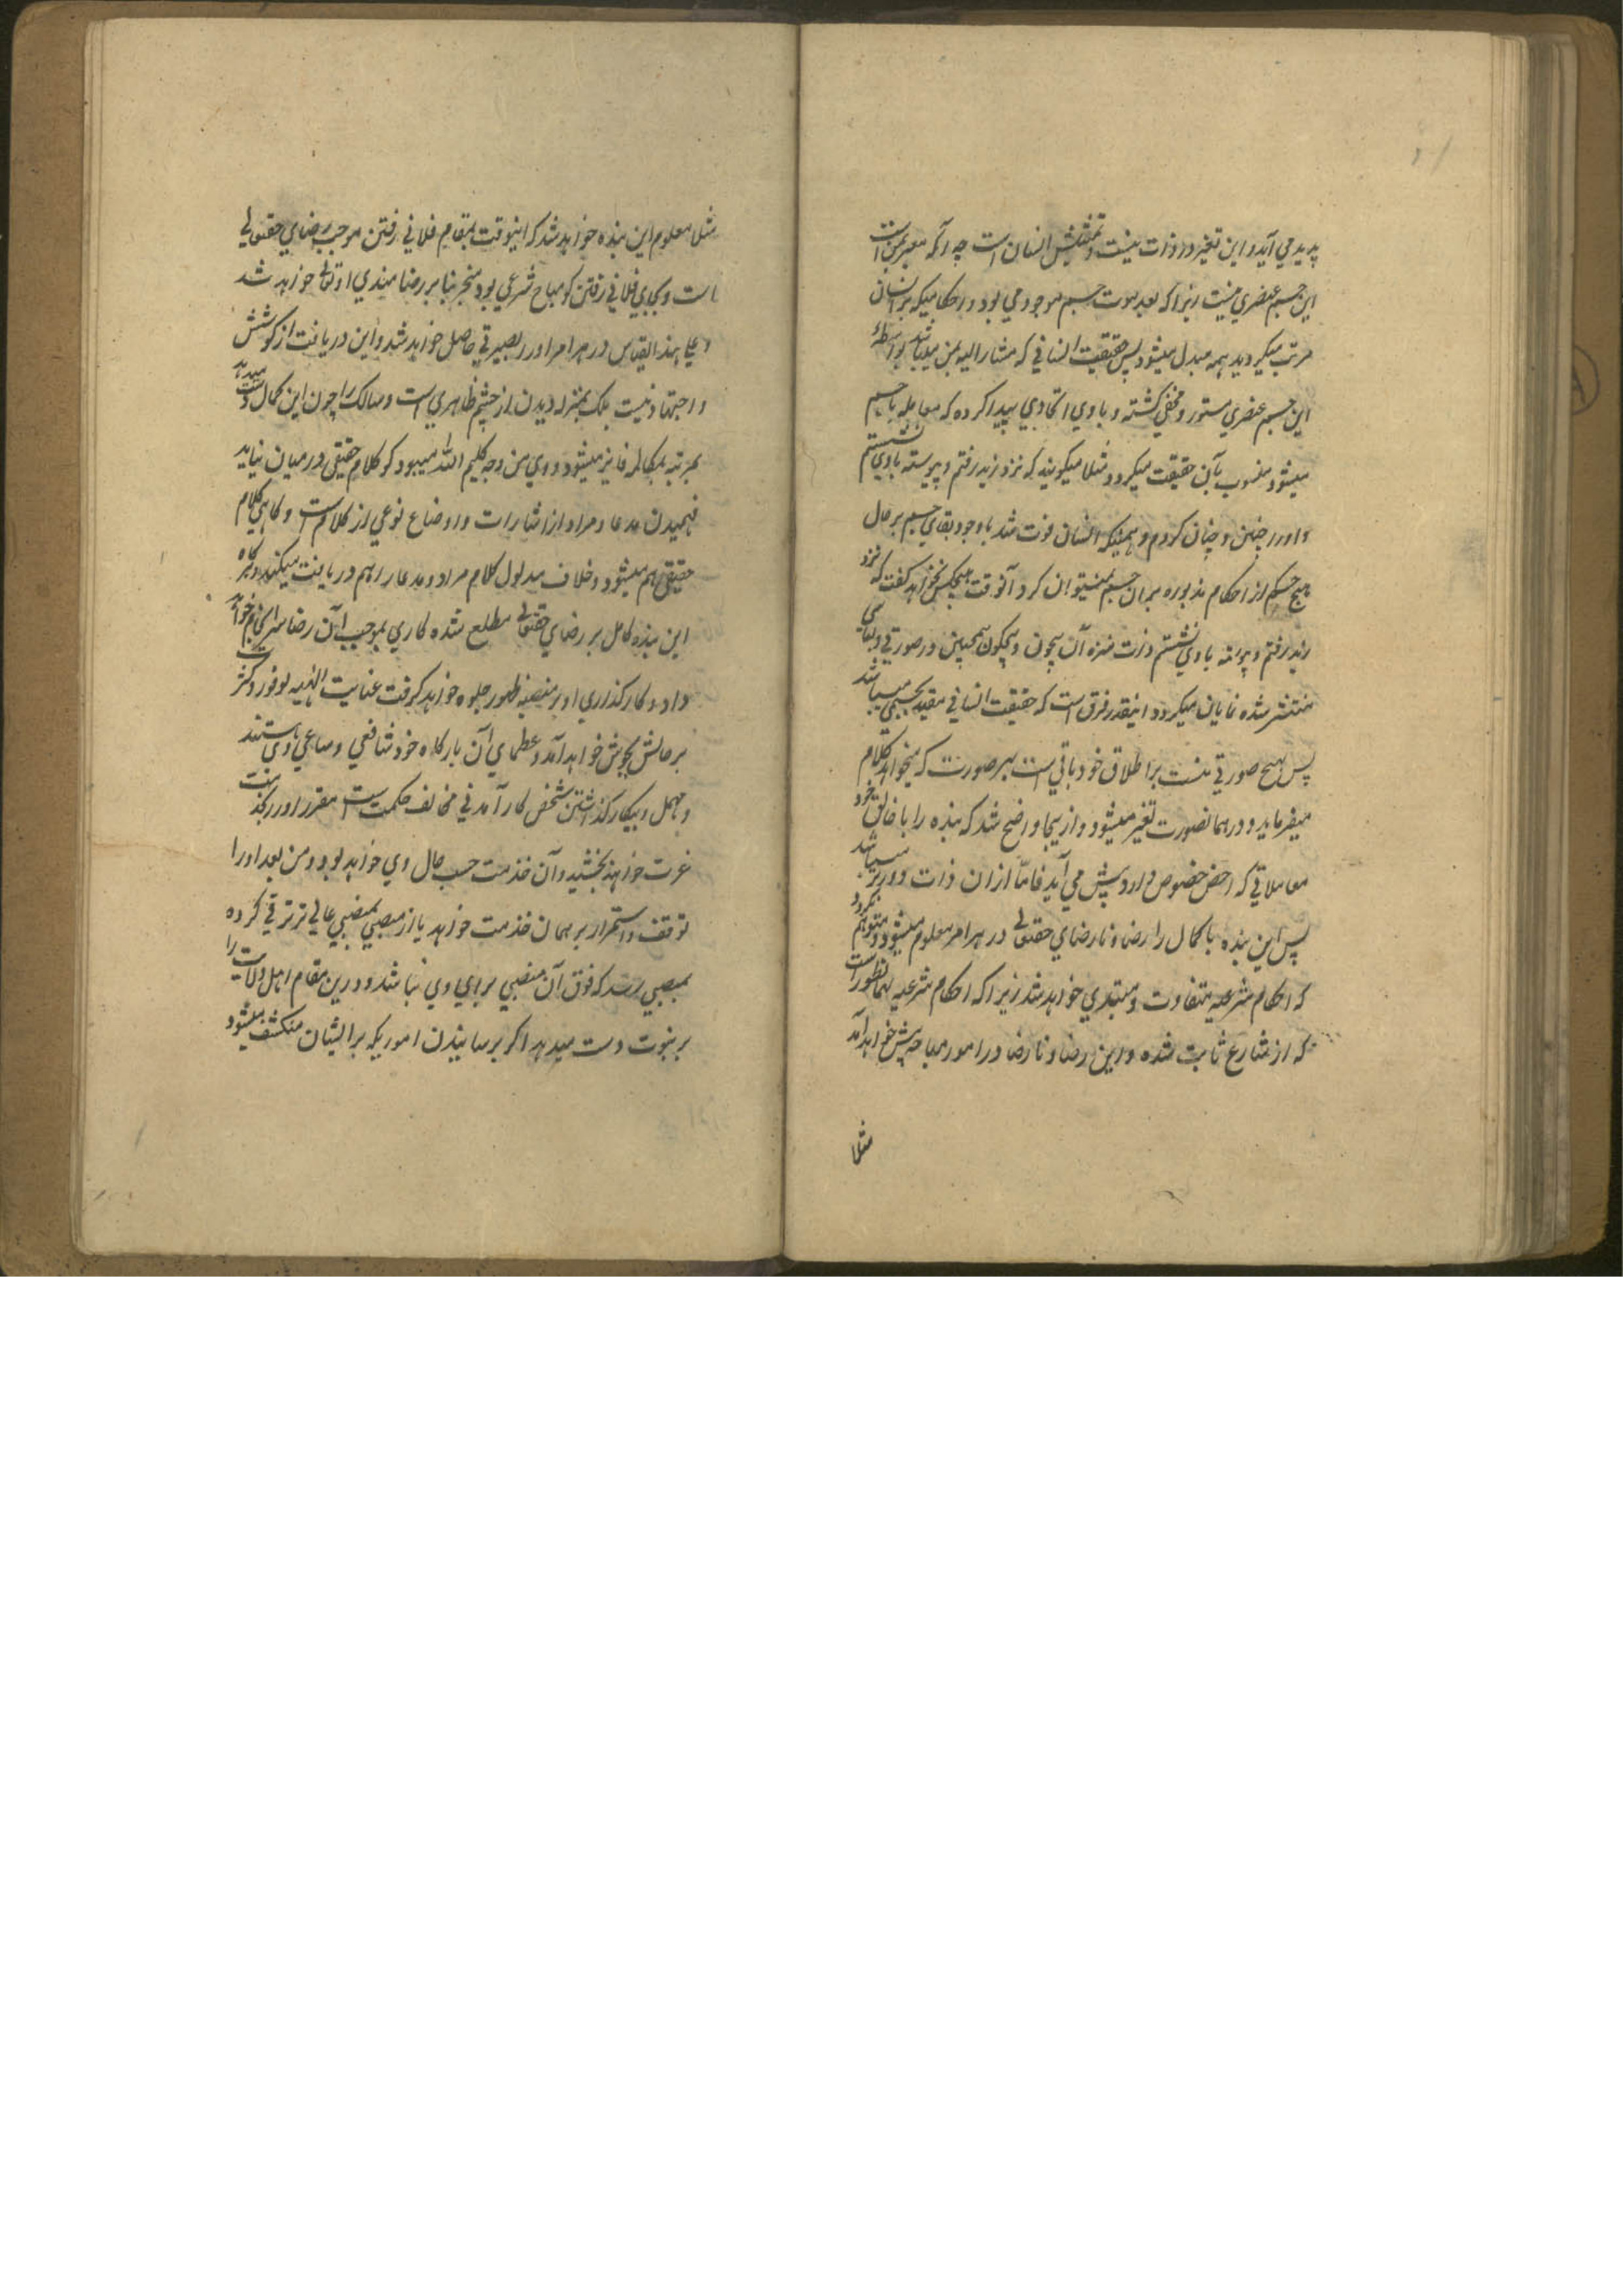 پدید می آید و این تغیر در ذات نیست و تمثیلش انسان است چه آنکه معبر بمن است
این جسم عنصری نیست زیرا که بعد موت جسم موجود می بود و احکامیکه بر انسان
مرتب میگردید همه مبدل میشود پس حقیقت انسانی که مشار الیه بمن میباشد بواسطهٔ
این جسم عنصری مستور و مخفی گشته و با وی اتحادی پیدا کرده که معامله با جسم
میشود منسوب بآن حقیقت میگردد مثلا میگویند که نزد زید رفتم و پیوسته با وی نشستم
و او را چنین و چنان کردم و همینکه انسان فوت شد با وجود بقای جسم بر حال
هیچ حکم از احکام مذبوره بران جسم نمیتوان کرد آنوقت هیچکس نخواهد گفت که نزد
زید رفتم و پیوسته با وی نشستم و ذات منزه آن بیچون و بیچگون همچنین در صورتی و لباسی
منتشر شده نمایان میگردد اینقدر فرق است که حقیقت انسانی مقید بجسمی میباشد
پس بهیچ صورتی نیست بر اطلاق خود باقی است بهر صورت که میخواهد کلام
میفرماید و در همانصورت تغیر میشود و ازینجا واضح شد که بنده را با خالق خود
معاملاتی که اخص خصوص دارد پیش می آید فاما ازان ذات دورتر میباشد
پس این بنده با کمال را رضا و نارضای حقتعالی در هر امر معلوم میشود و متوهم نگردد
که احکام شرعیه متفاوت و مبتدی خواهد شد زیرا که احکام شرعیه بهمانطور است
که از شارع ثابت شده و این رضا و نارضا در امور مباحه پیش خواهد آمد
مثلا
مثلا معلوم این بنده خواهد شد که اینوقت بمقام فلانی رفتن موجب رضای حقتعالی
است و بجای فلانی رفتن گو مباح شرعی بود منجر بنا بر رضامندی او تعالی خواهد شد
و علی هذا القیاس در هر امر او را بصیرتی حاصل خواهد شد و این دریافت از کوشش
و اجتهاد نیست بلکه بمنزله دیدن از چشم ظاهری است و سالک را چون این کمال دست میدهد
بمرتبه مکالمه فایز میشود و وی من وجه کلیم الله میبود گو کلام حقیقی درمیان نیاید
فهمیدن مدعا و مراد از اشارات و اوضاع نوعی از کلام است و گاهی کلام
حقیقی هم میشود و خلاف مدلول کلام مراد و مدعا را هم دریافت میکند و هرگاه
این بنده کامل بر رضای حقتعالی مطلع شده کاری بموجب آن رضا سرانجام خواهد
داد و کارگذاری او بر منصه ظهور جلوه خواهد گرفت عنایت الهیه بوفور و کثرت
بر حالش بجوش خواهد آمد و عظمای آن بارگاه خود شافعی و ساعی وی هستند
و مهمل و بیکار گذاشتن شخص کارآمدنی مخالف حکمت است مقرر او را بخدمت
عزت خواهند بخشید و آن خدمت حسب حال وی خواهد بود و من بعد او را
توقف و استمرار بر همان خدمت خواهد یا از منصبی بمنصبی عالی تر ترقی کرده
بمنصبی رسد که فوق آن منصبی برای وی نباشد و درین مقام اهل ولایت را
بر نبوت دست میدهد اگر برسانیدن اموریکه بر ایشان منکشف میشود